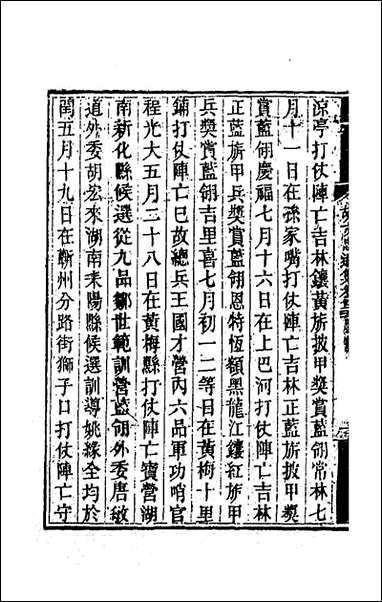 涼亭打仗陣亡吉林鑲黃旂披甲獎賞藍翎常林七
月十一日在孫家嘴打仗陣亡吉林正藍旂披甲獎
賞藍翎慶福七月十六日在上巴河打仗陣亡吉林
正藍旂甲兵獎賞藍翎恩特恆額黑龍江鑲紅旂甲
兵獎賞藍翎吉里喜七月初一二等日在黃梅十里
鋪打仗陣亡已故總兵王國才營內六品軍功哨官
程光大五月二十八日在黃梅縣打仗陣亡寶營湖
南新化縣候選從九品鄒世範訓營藍翎外委唐敏
道外委胡宏來湖南耒陽縣候選訓導姚緣全均於
閏五月十九日在蘄州分路街獅子口打仗陣亡守